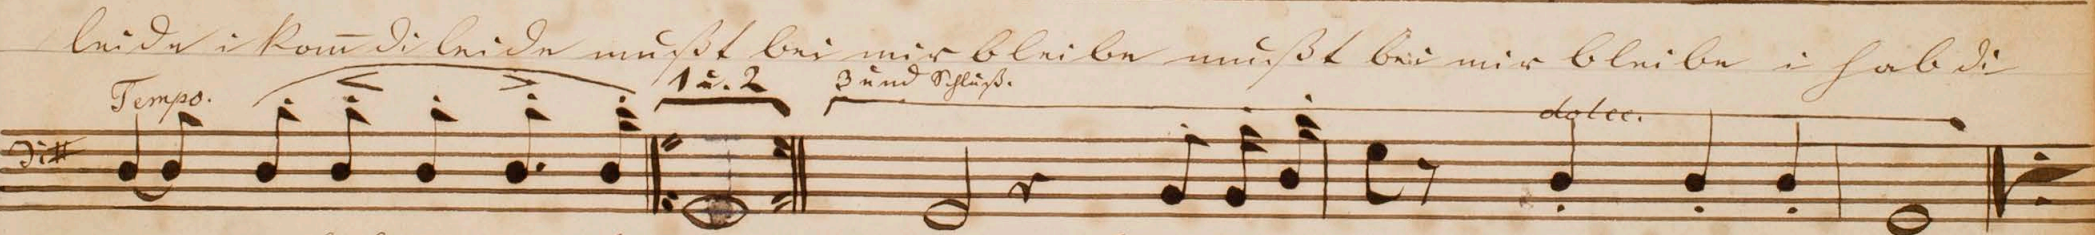 leide i kom̄ di leide mußt bei mir bleibe mußt bei mir bleibe i hab di
Tempo. 1 u. 2 3 und Schluß. dolce.